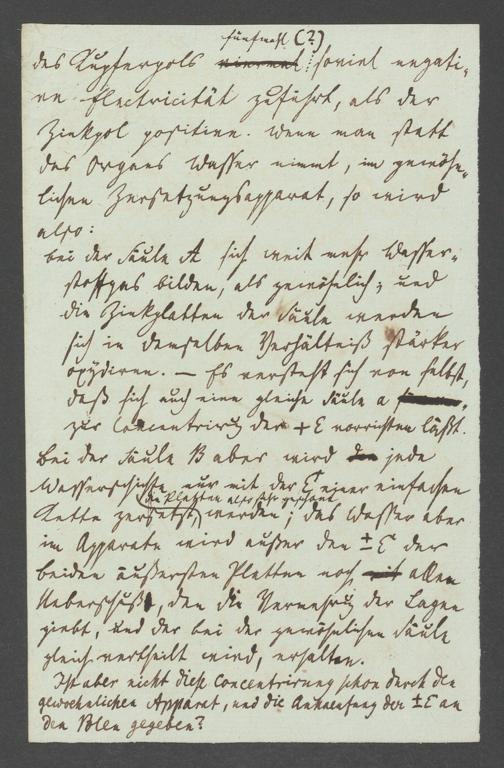 fünfmahl (?)
des Kupferpols viermal soviel negati-
ve Electricität zuführt, als der
Zinkpol positive. Wenn man statt
des Organs Wasser nimmt, im gewöhn-
lichen Zersetzungsapparat, so wird
also:
bei der Säule A sich weit mehr Wasser-
stoffgas bilden, als gewöhnlich; und
die Zinkplatten der Säule werden
sich in demselben Verhältniß stärker
oxydiren. — Es versteht sich von selbst,
daß sich auch eine gleiche Säule a
zur Concentrirug der +E vorrichten läßt.
bei der Säule B aber wird jede
Wasserschichte nur mit der E einer einfachen
Kette zersetzt werden; das Wasser aber
im Apparate wird außer den ±E der
beiden äußersten Platten noch allen
Ueberschuß, den die Vermehrug der Lagen
giebt, und der bei der gewöhnlichen Säule
gleich vertheilt wird, erhalten.
Ist aber nicht diese Concentrirung schon durch den
gewoehnlichen Apparat, und die Anhaeufung der ±E an
den Polen gegeben?